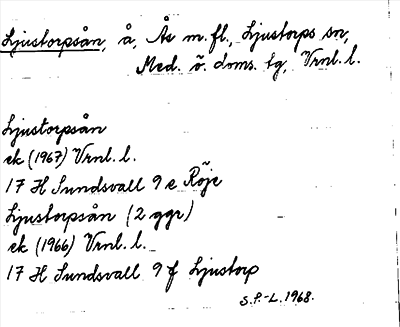 Ljustorpsån, å, Ås m.fl., Ljustorps sn,
Med. ö. doms. tg, Vrnl. l.
Ljustorpsån
ek (1967) Vrnl. l.
17 H Sundsvall 9 e Röje
Ljustorpsån (2 ggr)
ek (1966) Vrnl. l.
17 H Sundsvall 9 f Ljustorp
S.P.-L. 1968.